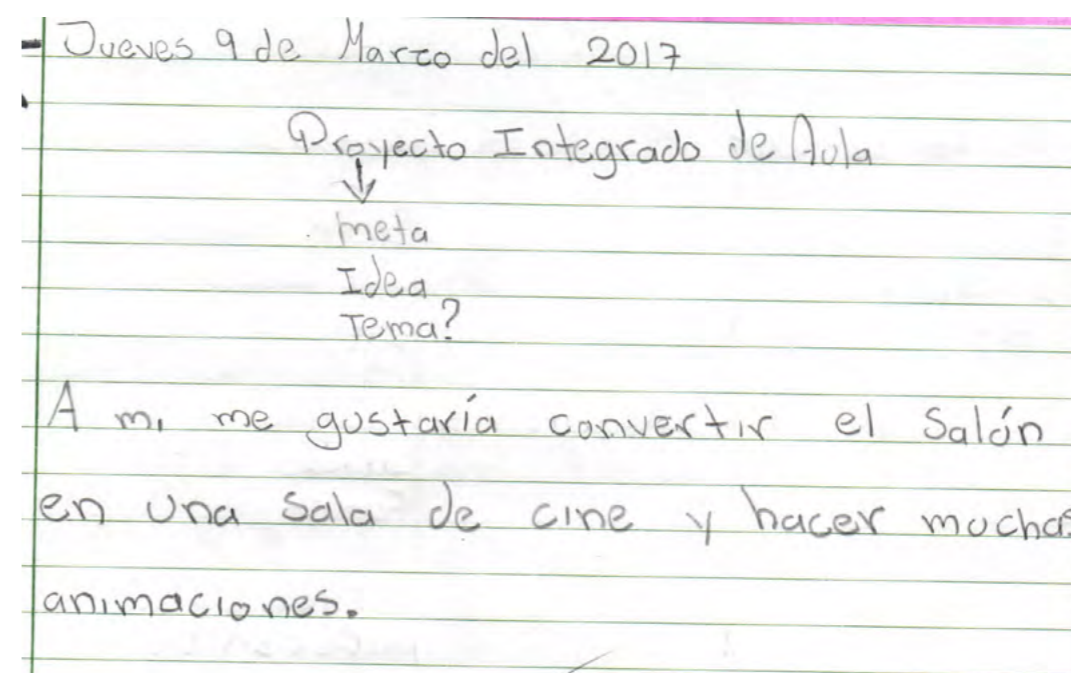 Jueves 9 de Marzo del 2017
Proyecto Integrado de Aula
meta
Idea
Tema?
A mi me gustaría convertir el Salón
en una Sala de cine y hacer muchas
animaciones.